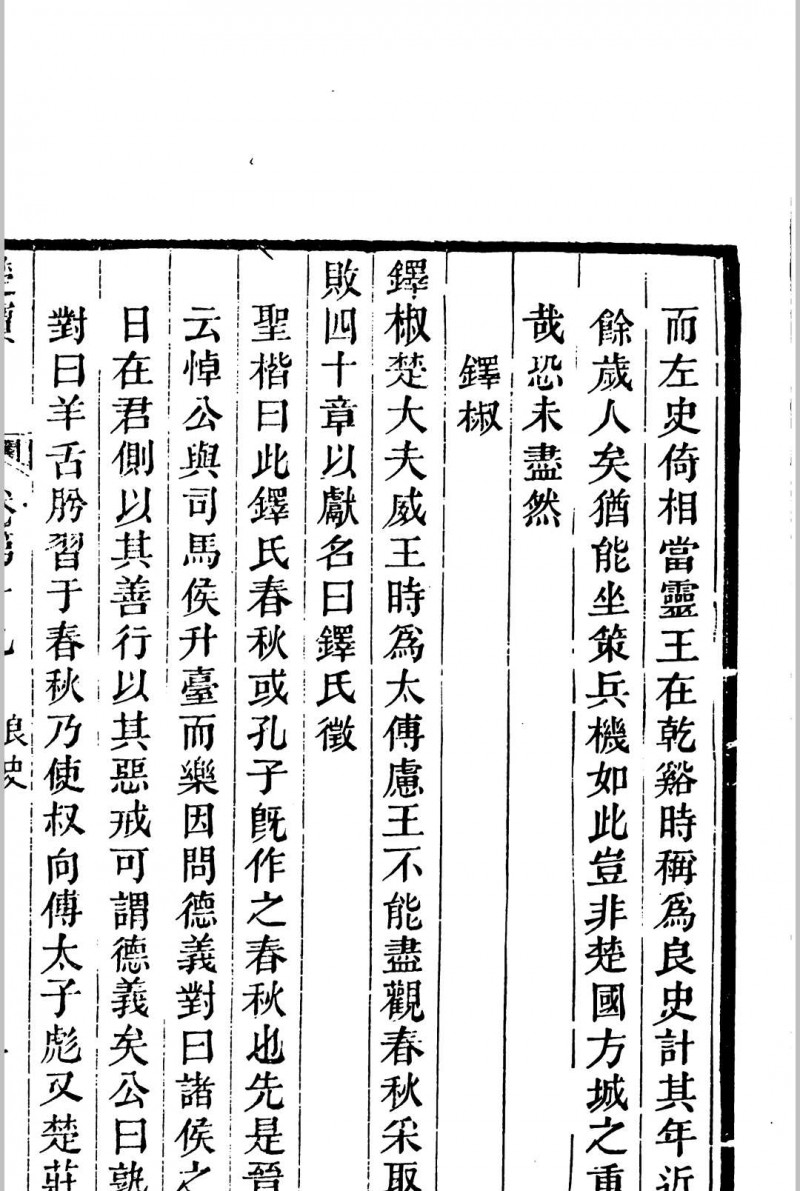 而左史倚相當靈王在乾谿時稱爲良史計其年近
餘歲人矣猶能坐策兵機如此豈非楚國方城之重
哉恐未盡然
鐸椒
鐸椒楚大夫威王時爲太傅慮王不能盡觀春秋采取
敗四十章以獻名曰鐸氏徵
聖楷曰此鐸氏春秋或孔子旣作之春秋也先是晉
云悼公與司馬侯升臺而樂因問德義對曰諸侯之
日在君側以其善行以其惡戒可謂德義矣公曰孰
對曰羊舌肹習于春秋乃使叔向傅太子彪又楚莊
良史